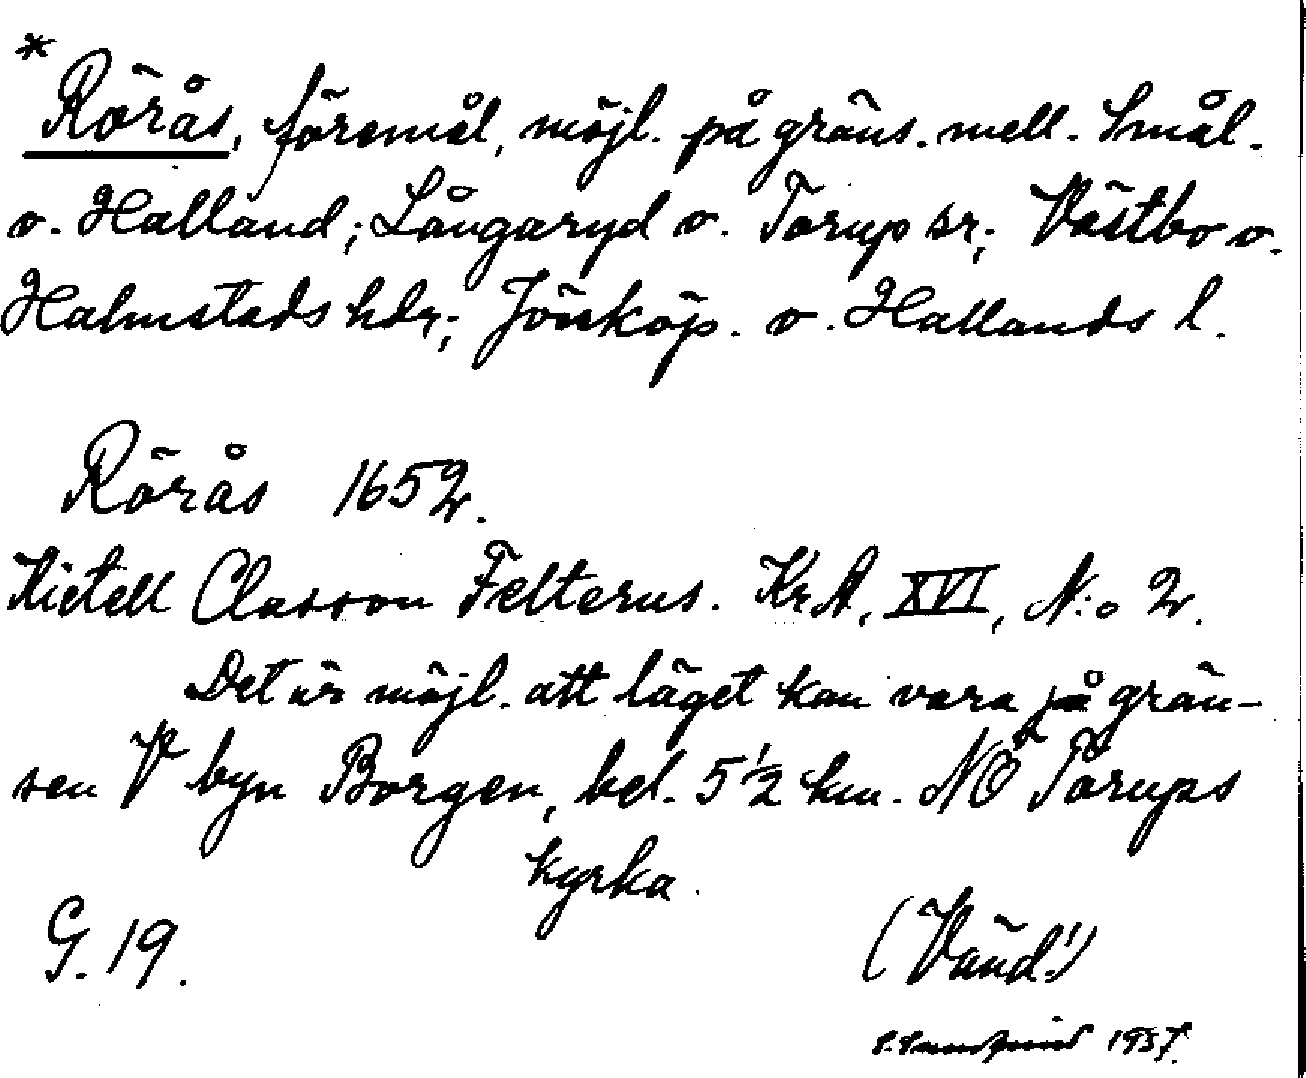 * Rörås, föremål, möjl. på gräns. mell. Smål.
o. Halland; Långaryd o. Torup sr; Västbo o.
Halmstads hdr; Jönköp. o. Hallands l.
Rörås 1652.
Kietell Classon Felterus. KrA, XVI, N:o 2.
Det är möjl. att läget kan vara på grän-
sen V byn Borgen, bel. 5 1/2 km. NÖ Torups
kyrka.
G. 19.
(Vänd!)
1937.